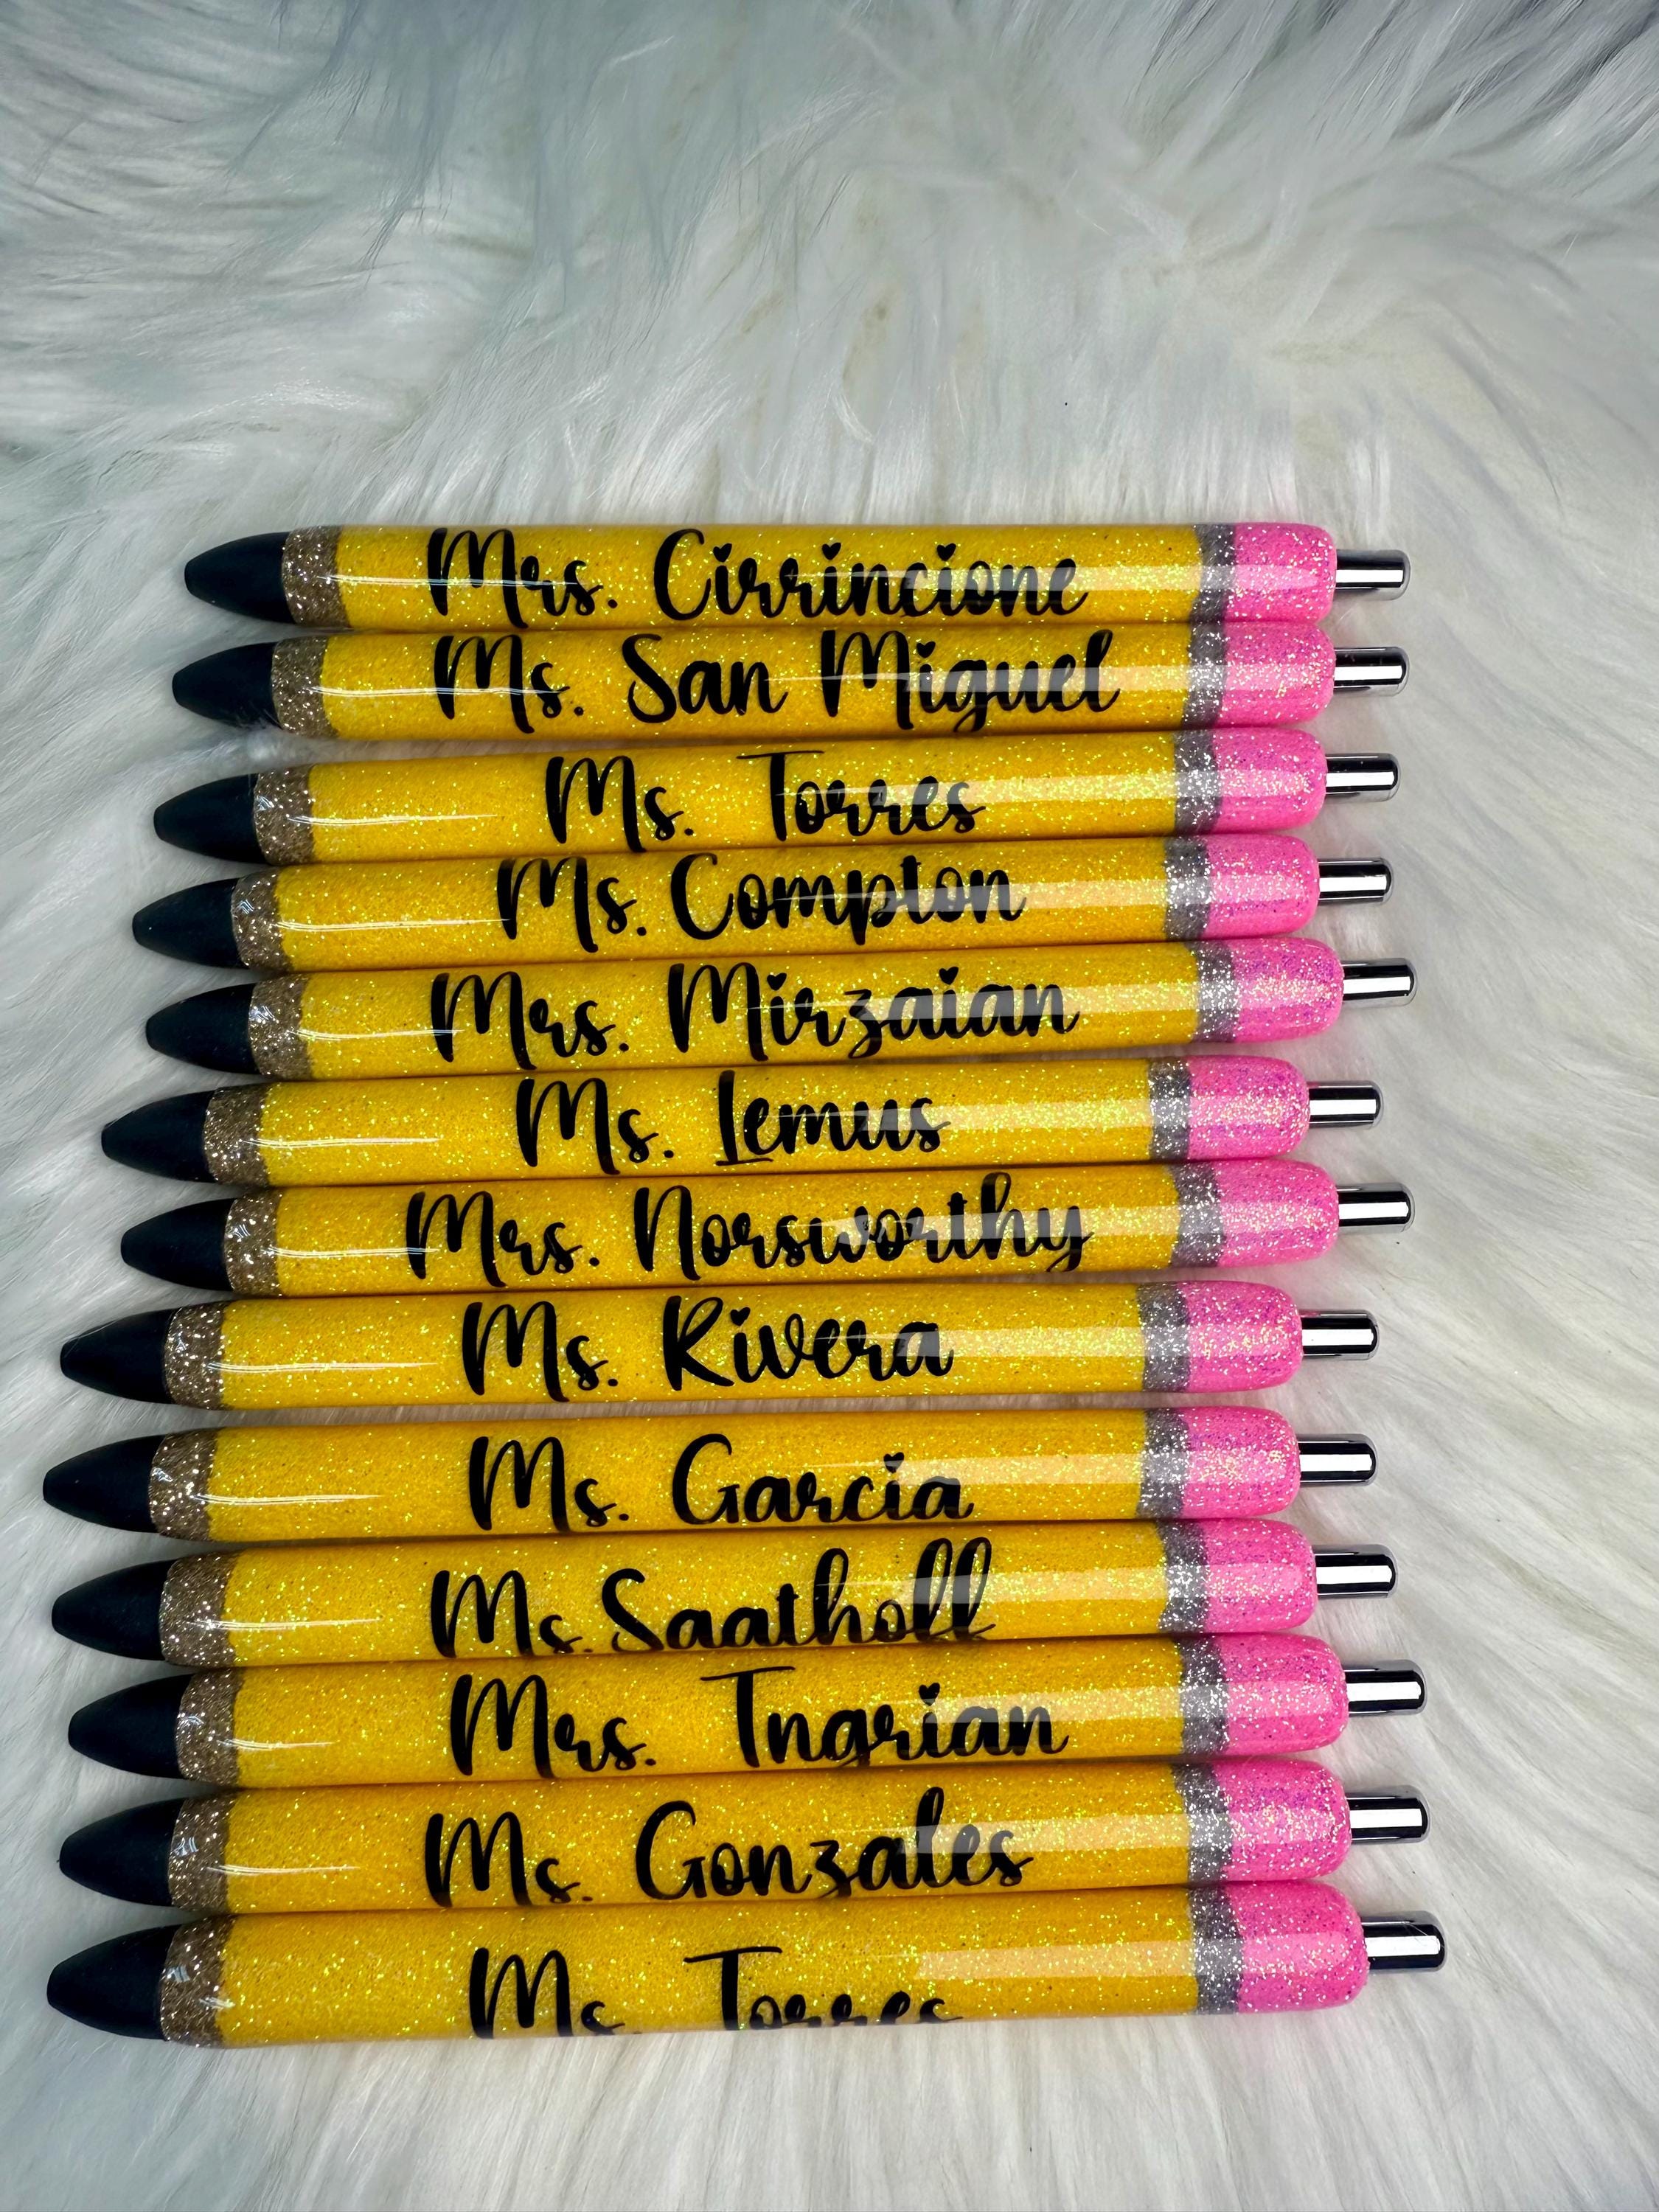 Mrs. Cirrincione
Ms. San Miguel
Ms. Torres
Ms. Compton
Mrs. Mirzaian
Ms. Lemus
Mrs. Norsworthy
Ms. Rivera
Ms. Garcia
Ms. Saathoff
Mrs. Ingrian
Ms. Gonzales
Ms. Torres